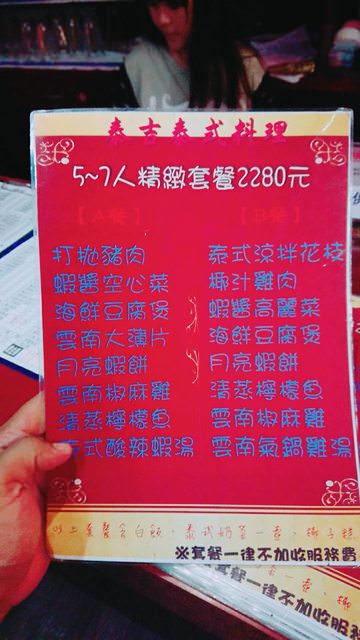 泰吉泰式料理
5~7人精緻套餐2280元
【A餐】 【B餐】
打拋豬肉 泰式涼拌花枝
蝦醬空心菜 椰汁雞肉
海鮮豆腐煲 蝦醬高麗菜
雲南大薄片 海鮮豆腐煲
月亮蝦餅 月亮蝦餅
雲南椒麻雞 清蒸檸檬魚
清蒸檸檬魚 雲南椒麻雞
泰式酸辣蝦湯 雲南氣鍋雞湯
以上套餐含白飯，泰式奶茶一壺，椰子糕
※套餐一律不加收服務費
套餐一律不加收服務費